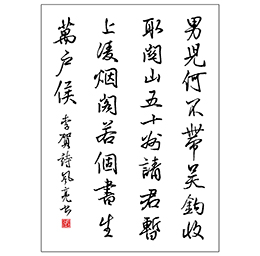 男児何不帶吴鈎收
取関山五十州請君暫
上凌烟阁若個書生
萬户侯
李賀詩 亮书